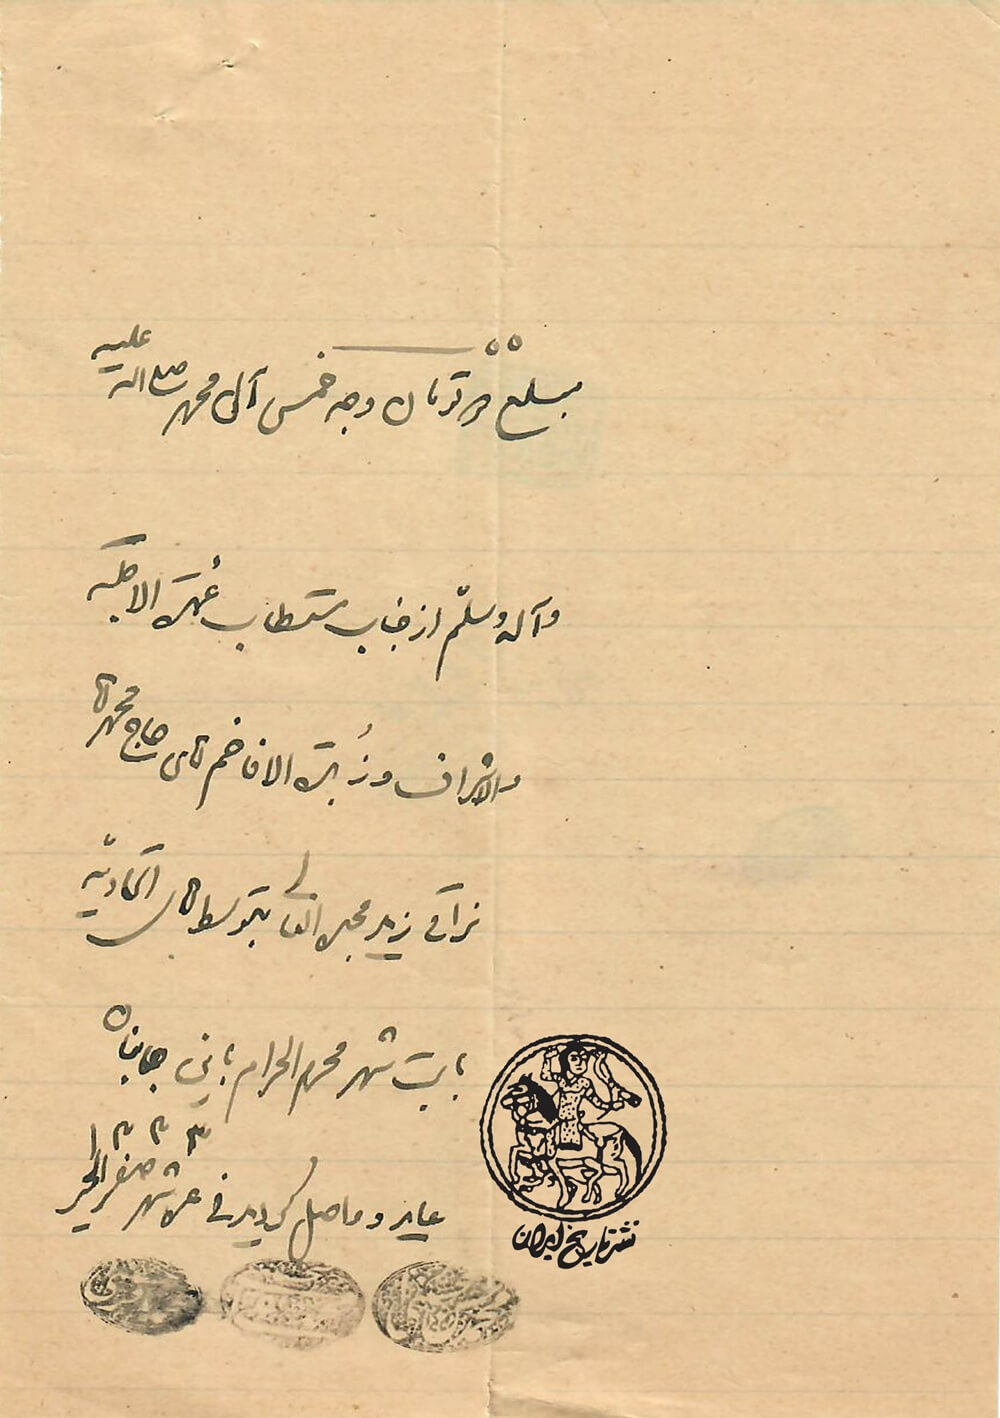 مبلغ ده تومان وجه خمس آل محمد صلی اله علیه
و آله و سلّم از جناب مستطاب عُمدة الاجله
والاشراف و زُبدة الافاخم آقای حاج محمد آقا
نراقی زید مجده العالی بتوسط آقای
بابت شهر محرم الحرام باین جانب
عاید و حاصل گردید فی غره شهر صفر الخیر ۱۳۳۳
نشر تاریخ ایران